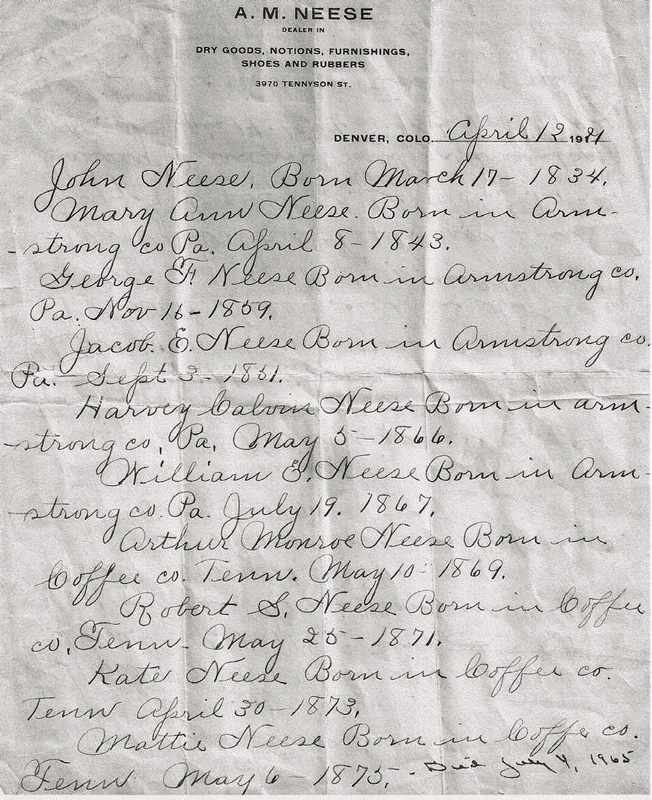 A. M. NEESE
DEALER IN
DRY GOODS, NOTIONS, FURNISHINGS,
SHOES AND RUBBERS
3970 TENNYSON ST.
DENVER, COLO. April 12 1921
John Neese. Born March 17 - 1834.
Mary Ann Neese. Born in Arm-
-strong co Pa. April 8 - 1843.
George F. Neese Born in Armstrong co.
Pa. Nov 16 - 1859.
Jacob. E. Neese Born in Armstrong co.
Pa. Sept 3 - 1861.
Harvey Calvin Neese Born in arm-
-strong co, Pa, May 5 - 1866.
William E. Neese Born in Arm-
-strong co. Pa. July 19. 1867.
Arthur Monroe Neese Born in
Coffee co. Tenn. May 10 - 1869.
Robert S. Neese Born in Coffee
co, Tenn - May 25 - 1871.
Kate Neese Born in Coffee co.
Tenn April 30 - 1873.
Mattie Neese Born in Coffe co.
Tenn May 6 - 1875. - Died July 4, 1965